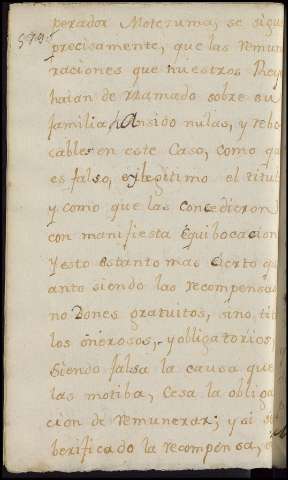 perador Motezuma; se sigue
579
precisamente, que las remune
raciones que nuestros Reye
haian derramado sobre su
familia, ansido nulas, y rebo
cables en este Caso, como qe
es falso, e ylegitimo el titul
y como que las concedieron
con manifiesta equibocacion
Y esto es tanto mas cierto qu
anto siendo las recompensas
no Dones gratuitos, sino, tit
los onerosos, y obligatorios;
Siendo falsa la causa que
las motiba, Cesa la obliga
cion de remunerar; y si se
berificado la recompensa,